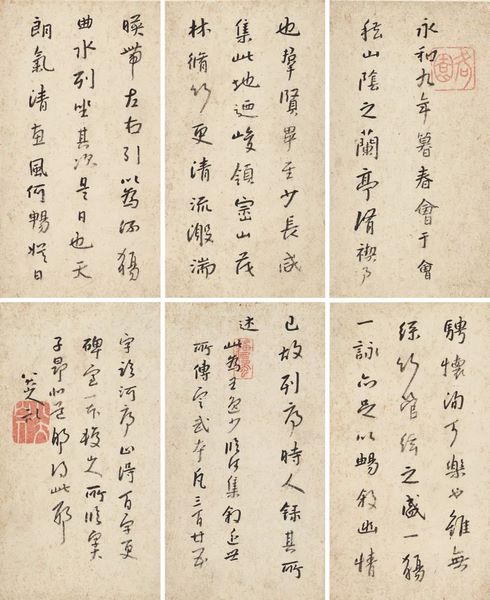 永和九年暮春會于會
稽山陰之蘭亭脩禊事
也羣賢畢至少長咸
集此地迺峻領崇山茂
林脩竹更清流激湍
暎帶左右引以為流觴
曲水列坐其次是日也天
朗氣清惠風和暢娛目
騁懷洵可樂也雖無
絲竹管絃之盛一觴
一詠亦足以暢敘幽情
已故列序時人錄其所
述
此為王逸少臨河集敘近世
所傳定武本凡三百廿五
字 河序止得百字更
碑定一本 所臨
子昂 耶得此耶
八大山人